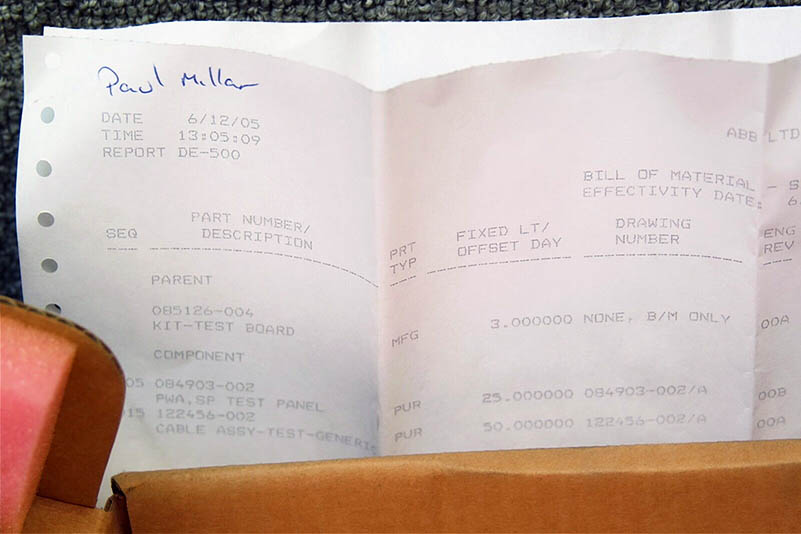 Paul Millar
DATE 6/12/05
TIME 13:05:09
REPORT DE-500
ABB LTD
BILL OF MATERIAL - S
EFFECTIVITY DATE: 6
SEQ PART NUMBER/ DESCRIPTION PRT TYP FIXED LT/ OFFSET DAY DRAWING NUMBER ENG REV
PARENT
085126-004
KIT-TEST BOARD MFG 3.000000 NONE, B/M ONLY 00A
COMPONENT
05 084903-002
PWA,SP TEST PANEL PUR 25.000000 084903-002/A 00B
15 122456-002
CABLE ASSY-TEST-GENERIC PUR 50.000000 122456-002/A 00A